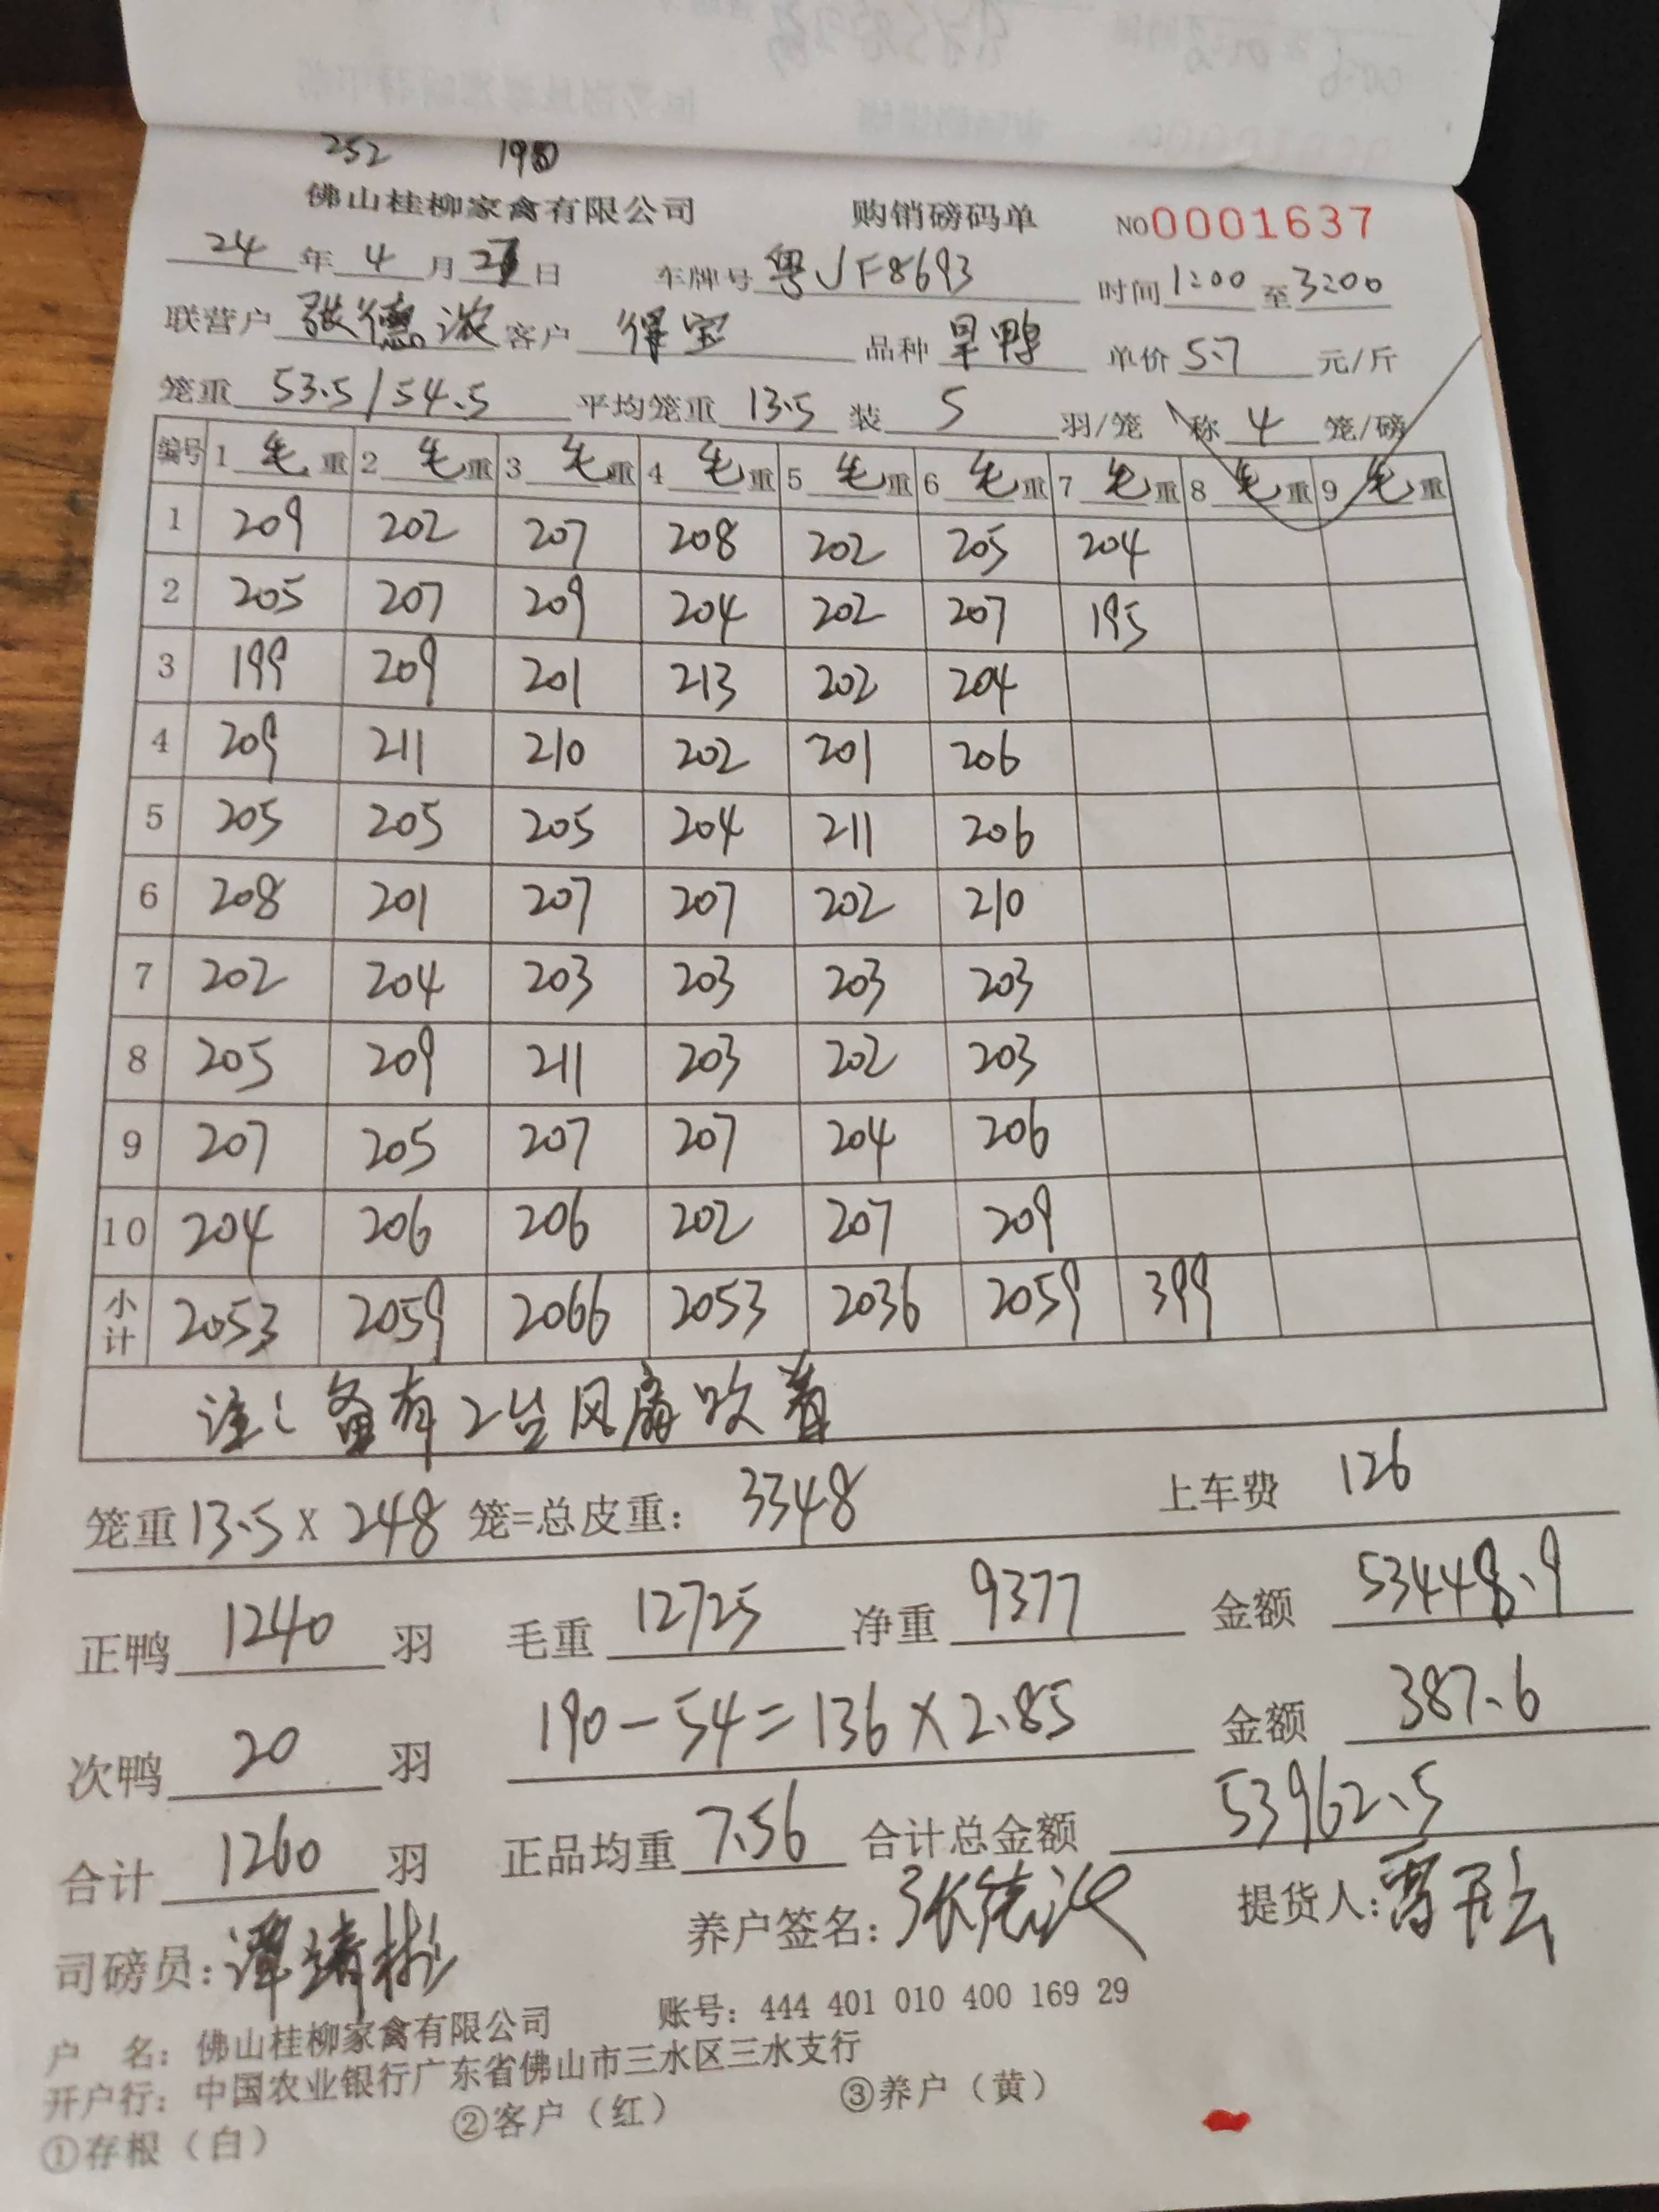 252 1980
佛山桂柳家禽有限公司 购销磅码单 NO0001637
24 年 4 月 27 日 车牌号 粤JF8693 时间 1:00 至 3:00
联营户 张德浓 客户 得宝 品种 旱鸭 单价 5.7 元/斤
笼重 53.5/54.5 平均笼重 13.5 装 5 羽/笼 称 4 笼/磅
编号 1 毛 重 2 毛 重 3 毛 重 4 毛 重 5 毛 重 6 毛 重 7 毛 重 8 毛 重 9 毛 重
1 209 202 207 208 202 205 204
2 205 207 209 204 202 207 195
3 199 209 201 213 202 204
4 209 211 210 202 201 206
5 205 205 205 204 211 206
6 208 201 207 207 202 210
7 202 204 203 203 203 203
8 205 209 211 203 202 203
9 207 205 207 207 204 206
10 204 206 206 202 207 209
小计 2053 2059 2066 2053 2036 2059 399
注: 备有2台风扇吹着
笼重 13.5 X 248 笼=总皮重: 3348 上车费 126
正鸭 1240 羽 毛重 12725 净重 9377 金额 53448.9
次鸭 20 羽 190-54=136×2.85 金额 387.6
合计 1260 羽 正品均重 7.56 合计总金额 53962.5
司磅员: 养户签名: 张德浓 提货人:
户 名: 佛山桂柳家禽有限公司 账号: 444 401 010 400 169 29
开户行: 中国农业银行广东省佛山市三水区三水支行
①存根（白） ②客户（红） ③养户（黄）